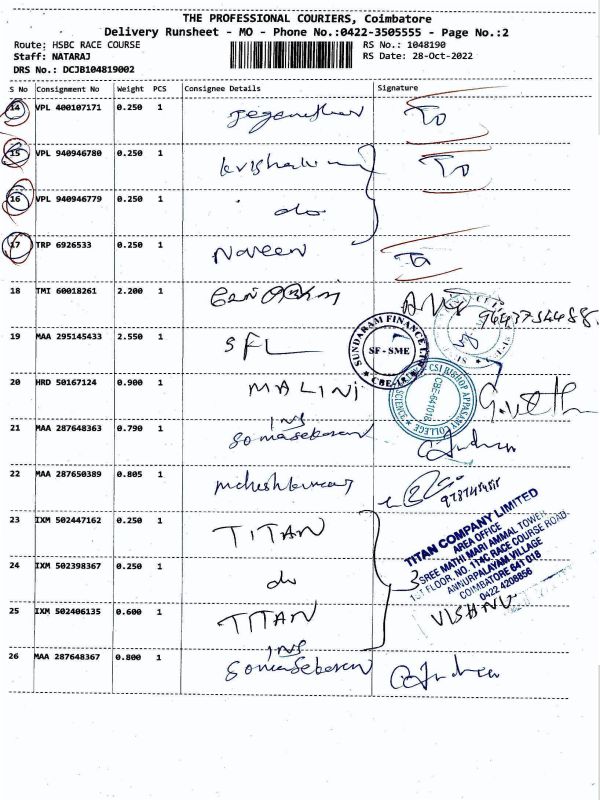 THE PROFESSIONAL COURIERS, Coimbatore
Delivery Runsheet - MO - Phone No.:0422-3505555 - Page No.:2
Route: HSBC RACE COURSE RS No.: 1048190
Staff: NATARAJ RS Date: 28-Oct-2022
DRS No.: DCJB104819002
S No Consignment No Weight PCS Consignee Details Signature
14 VPL 400107171 0.250 1
15 VPL 940946780 0.250 1
16 VPL 940946779 0.250 1 do
17 TRP 6926533 0.250 1 Naveen
18 TMI 60018261 2.200 1
19 MAA 295145433 2.550 1 SFL
SUNDARAM FINANCE LTD
SF - SME
20 HRD 50167124 0.900 1 MALINI
CSI BISHOP APPASAMY COLLEGE
CBE-641018
21 MAA 287648363 0.790 1 Somasekaran
22 MAA 287650389 0.805 1
23 IXM 502447162 0.250 1 TITAN
24 IXM 502398367 0.250 1 do
25 IXM 502406135 0.600 1 TITAN
TITAN COMPANY LIMITED
AREA OFFICE
SREE MATHI MARI AMMAL TOWER
1ST FLOOR, NO. 114C RACE COURSE ROAD.
ANNURPALAYAM VILLAGE
COIMBATORE 641 018
0422 4208856
3
VISHNU
26 MAA 287648367 0.800 1 Somasekaran